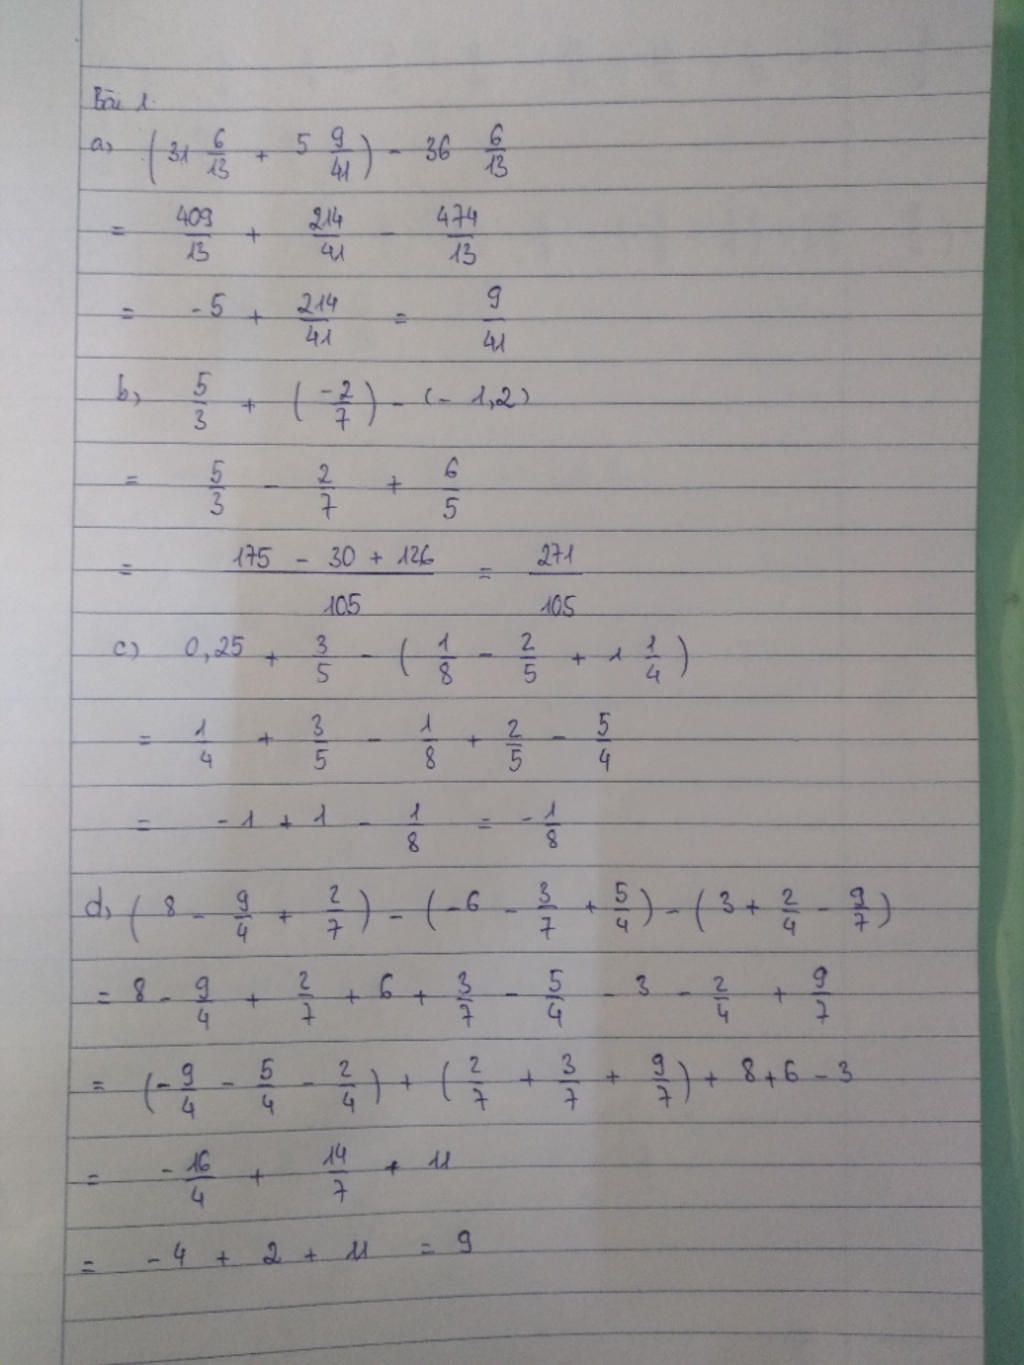 Bài 1.
a) (31 6/13 + 5 9/41) - 36 6/13
= 409/13 + 214/41 - 474/13
= -5 + 214/41 = 9/41
b) 5/3 + (-2/7) - (-1,2)
= 5/3 - 2/7 + 6/5
= (175 - 30 + 126)/105 = 271/105
c) 0,25 + 3/5 - (1/8 - 2/5 + 1 1/4)
= 1/4 + 3/5 - 1/8 + 2/5 - 5/4
= -1 + 1 - 1/8 = -1/8
d) (8 - 9/4 + 2/7) - (-6 - 3/7 + 5/4) - (3 + 2/4 - 9/7)
= 8 - 9/4 + 2/7 + 6 + 3/7 - 5/4 - 3 - 2/4 + 9/7
= (-9/4 - 5/4 - 2/4) + (2/7 + 3/7 + 9/7) + 8 + 6 - 3
= -16/4 + 14/7 + 11
= -4 + 2 + 11 = 9